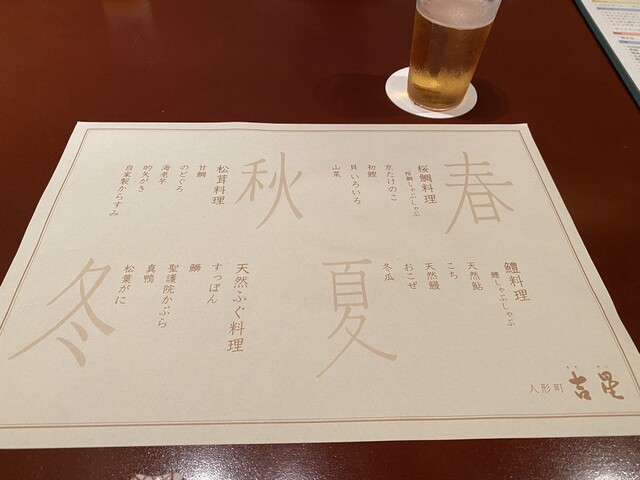 春
桜鯛料理
桜鯛しゃぶしゃぶ
京たけのこ
初鰹
貝いろいろ
山菜
夏
鱧料理
鱧しゃぶしゃぶ
天然鮎
こち
天然鰻
おこぜ
冬瓜
秋
松茸料理
甘鯛
のどぐろ
海老芋
的矢がき
自家製からすみ
冬
天然ふぐ料理
すっぽん
鰤
聖護院かぶら
真鴨
松葉がに
人形町
吉星